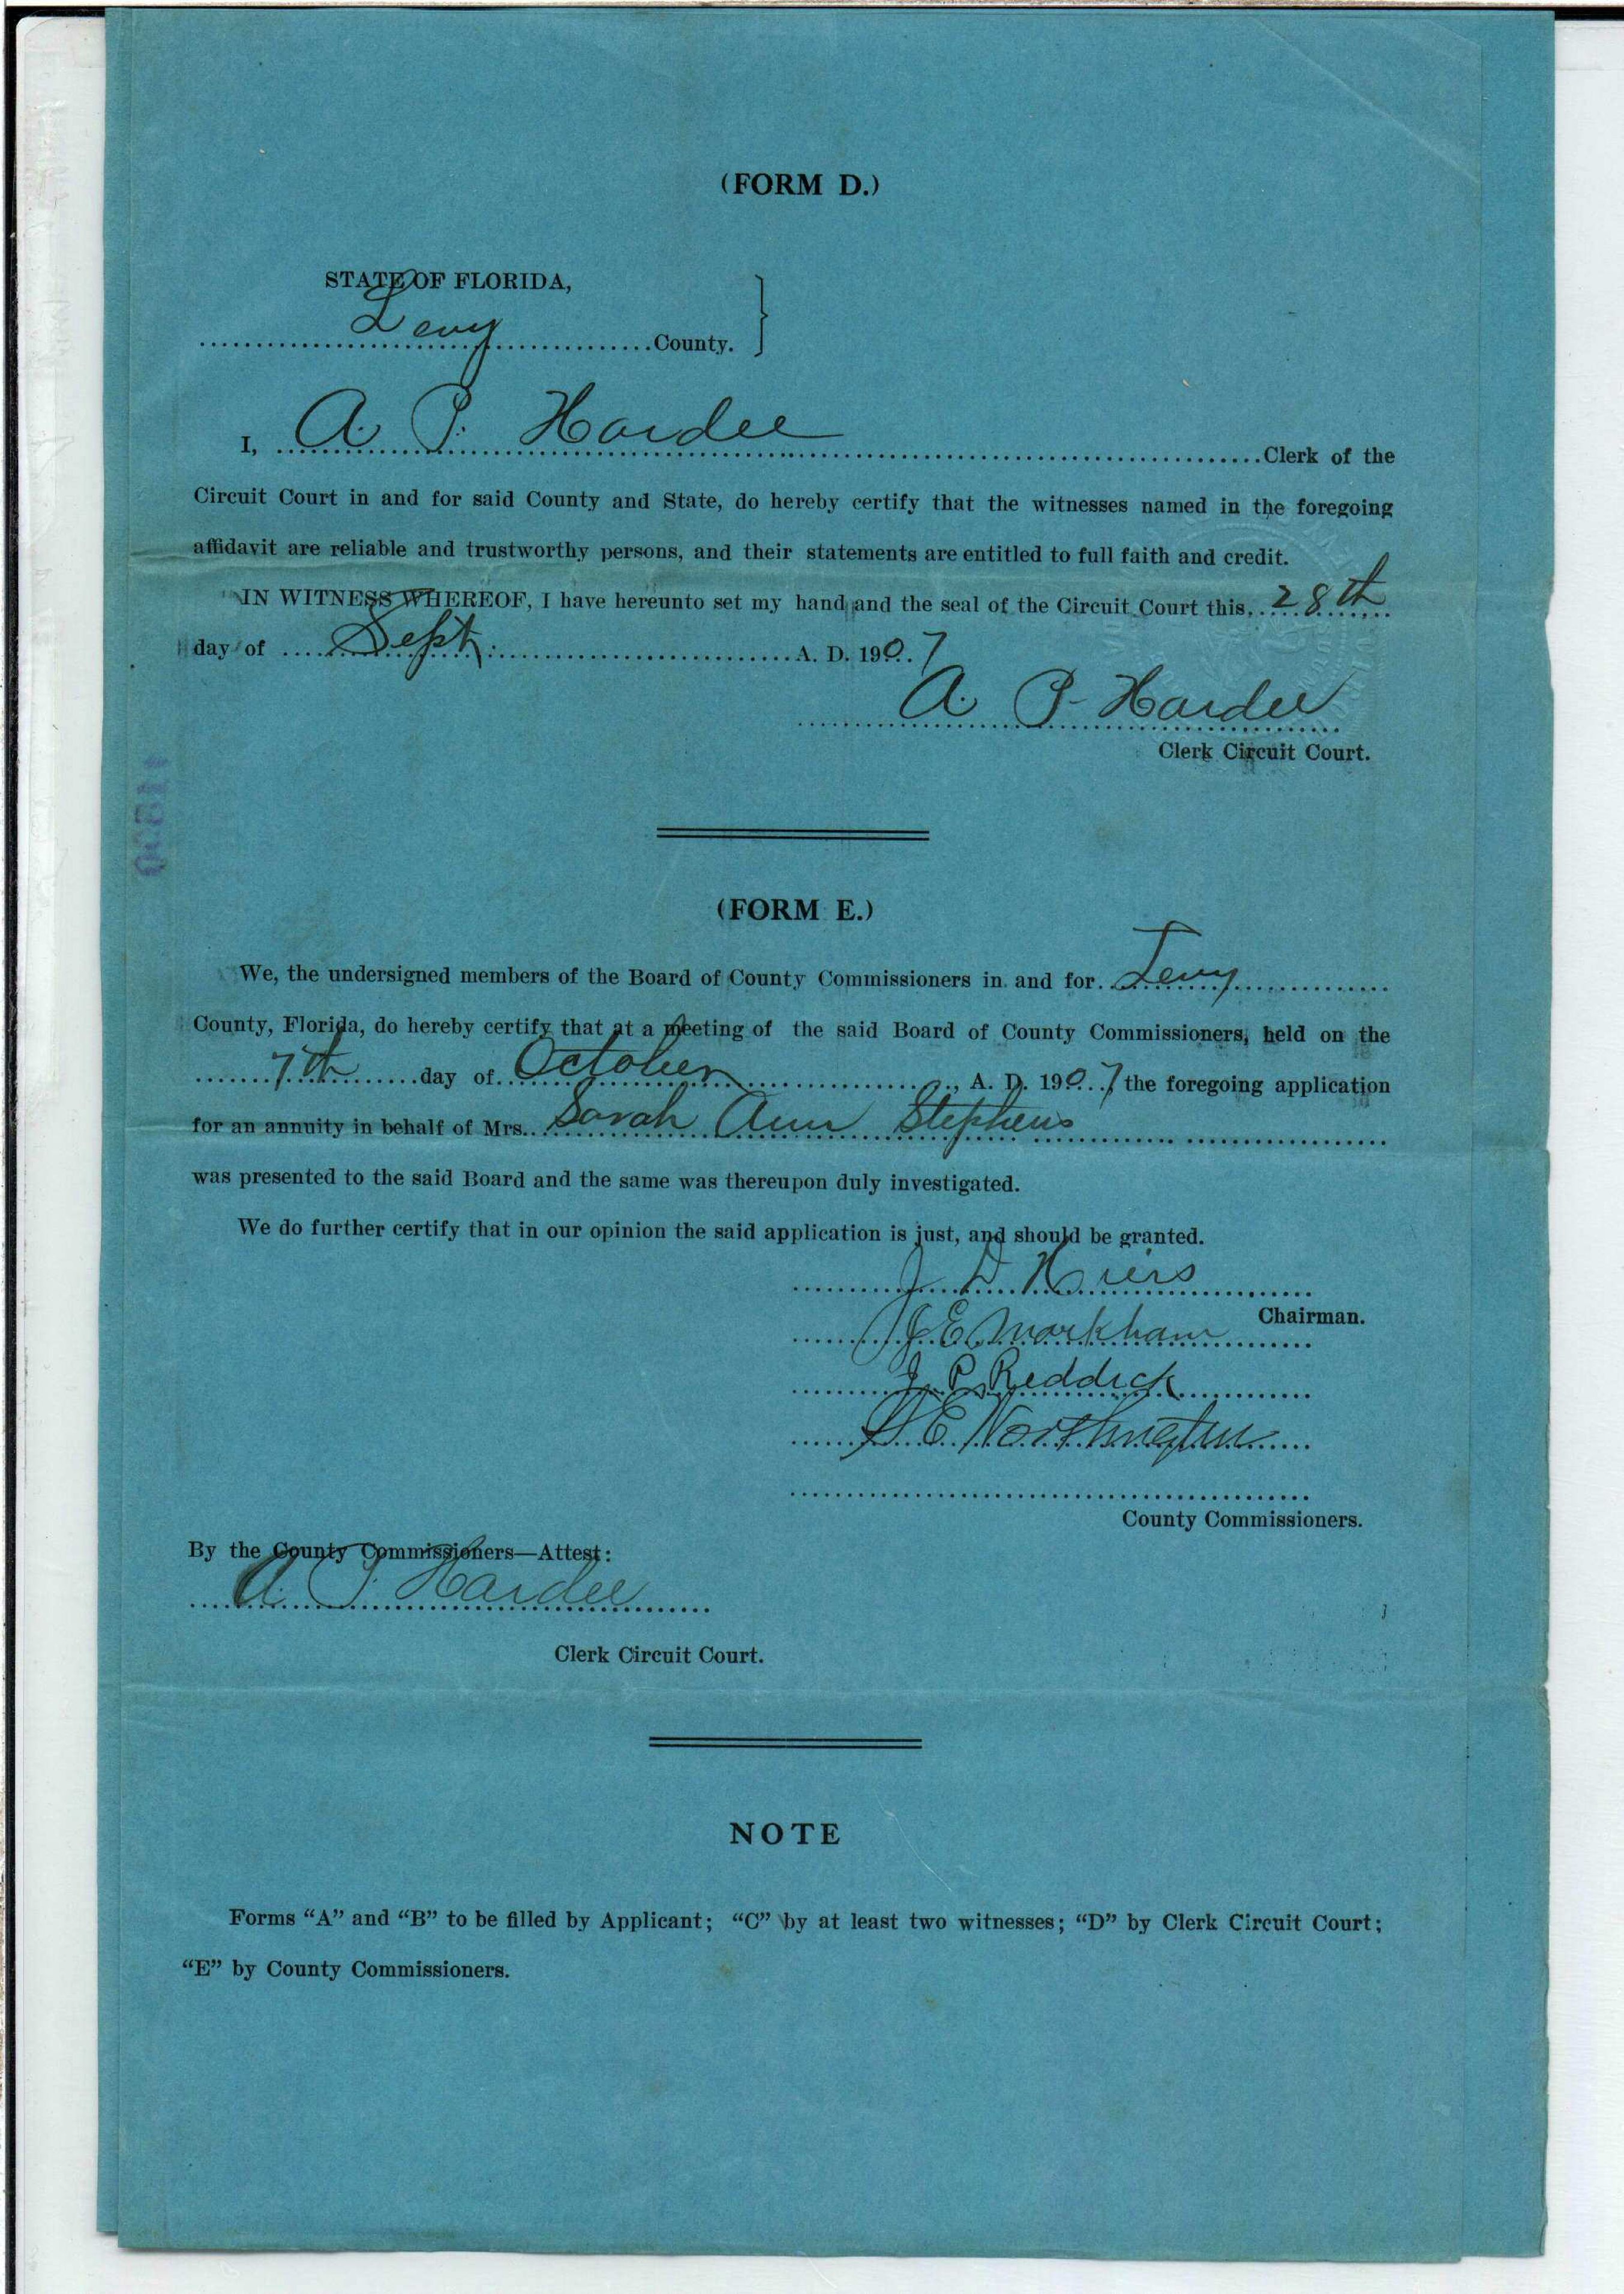 (FORM D.)
STATE OF FLORIDA,
Levy County.
I, A. P. Hardee Clerk of the
Circuit Court in and for said County and State, do hereby certify that the witnesses named in the foregoing
affidavit are reliable and trustworthy persons, and their statements are entitled to full faith and credit.
IN WITNESS WHEREOF, I have hereunto set my hand and the seal of the Circuit Court this 28th
day of Sept. A. D. 1907
A. P. Hardee
Clerk Circuit Court.
(FORM E.)
We, the undersigned members of the Board of County Commissioners in and for Levy
County, Florida, do hereby certify that at a meeting of the said Board of County Commissioners, held on the
7th day of October, A. D. 1907 the foregoing application
for an annuity in behalf of Mrs. Sarah Ann Stephens
was presented to the said Board and the same was thereupon duly investigated.
We do further certify that in our opinion the said application is just, and should be granted.
J. D. Hiers
Chairman.
J E Markham
J. P. Reddick
E Worthington
County Commissioners.
By the County Commissioners—Attest:
A. P. Hardee
Clerk Circuit Court.
NOTE
Forms “A” and “B” to be filled by Applicant; “C” by at least two witnesses; “D” by Clerk Circuit Court;
“E” by County Commissioners.